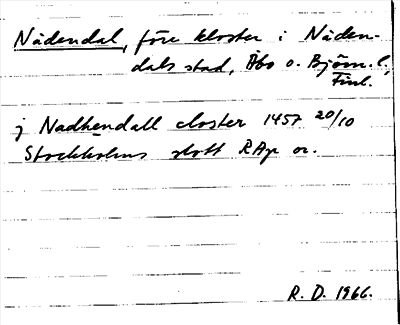 Nådendal, före kloster i Nåden-
dals stad, Åbo o. Björn. l,
Finl.
j Nadhendall closter 1457 20/10
Stockholms slott RAp or.
R. D. 1966.